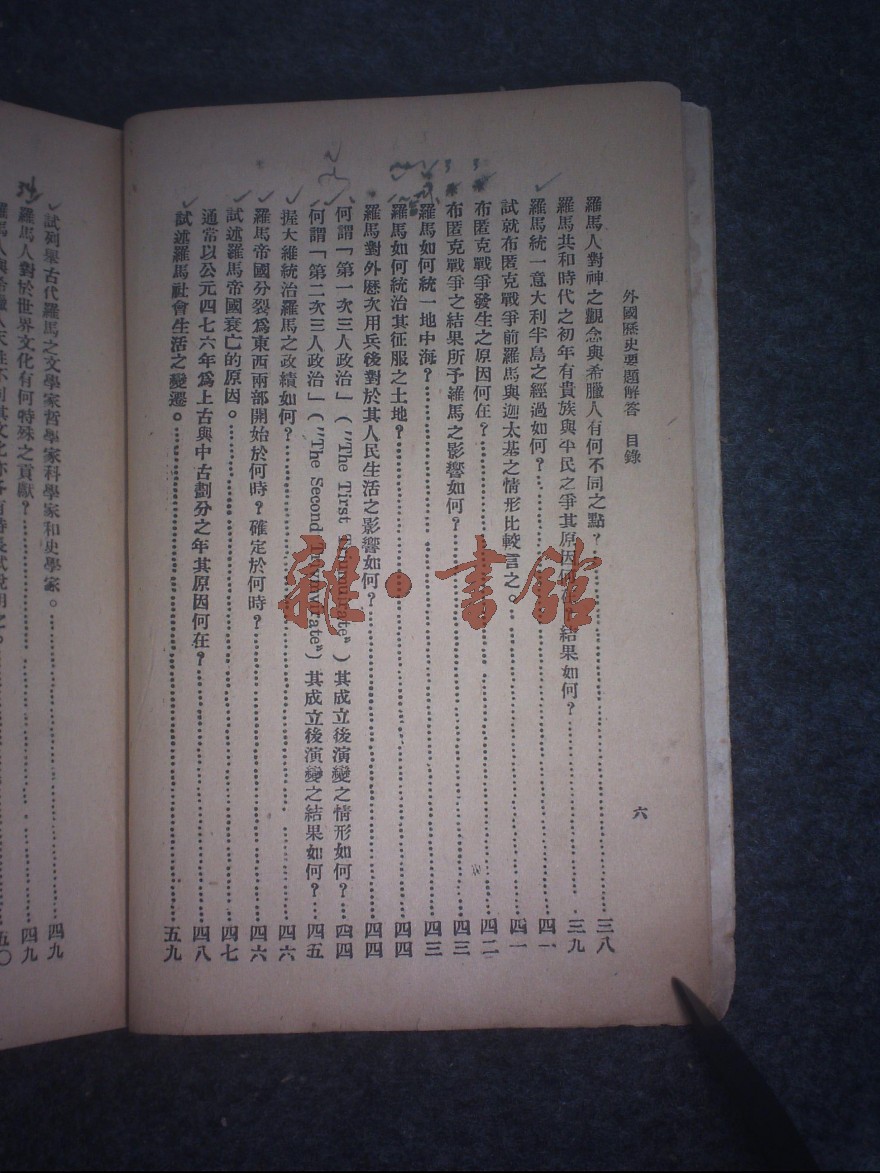 外國歷史要題解答 目錄 六
羅馬人對神之觀念與希臘人有何不同之點?……三八
羅馬共和時代之初年有貴族與平民之爭其原因何在結果如何?……三九
羅馬統一意大利半島之經過如何?……四一
試就布匿克戰爭前羅馬與迦太基之情形比較言之。……四一
布匿克戰爭發生之原因何在?……四二
布匿克戰爭之結果所予羅馬之影響如何?……四三
羅馬如何統一地中海?……四三
羅馬如何統治其征服之土地?……四四
羅馬對外歷次用兵後對於其人民生活之影響如何?……四四
何謂「第一次三人政治」("The Tirst")其成立後演變之情形如何?……四四
何謂「第二次三人政治」("The Second")其成立後演變之結果如何?……四五
握大維統治羅馬之政績如何?……四六
羅馬帝國分裂爲東西兩部開始於何時?確定於何時?……四六
試述羅馬帝國衰亡的原因。……四七
通常以公元四七六年爲上古與中古劃分之年其原因何在?……四八
試述羅馬社會生活之變遷。……五九
試列舉古代羅馬之文學家哲學家科學家和史學家。……四九
羅馬人對於世界文化有何特殊之貢獻?……四九
五〇
雜·書館